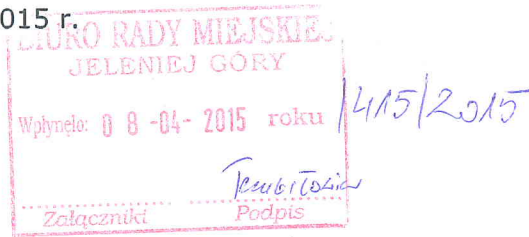 015 r.
BIURO RADY MIEJSKIEJ
JELENIEJ GÓRY
Wpłynęło: 08-04-2015 roku /415/2015
Załączniki Podpis